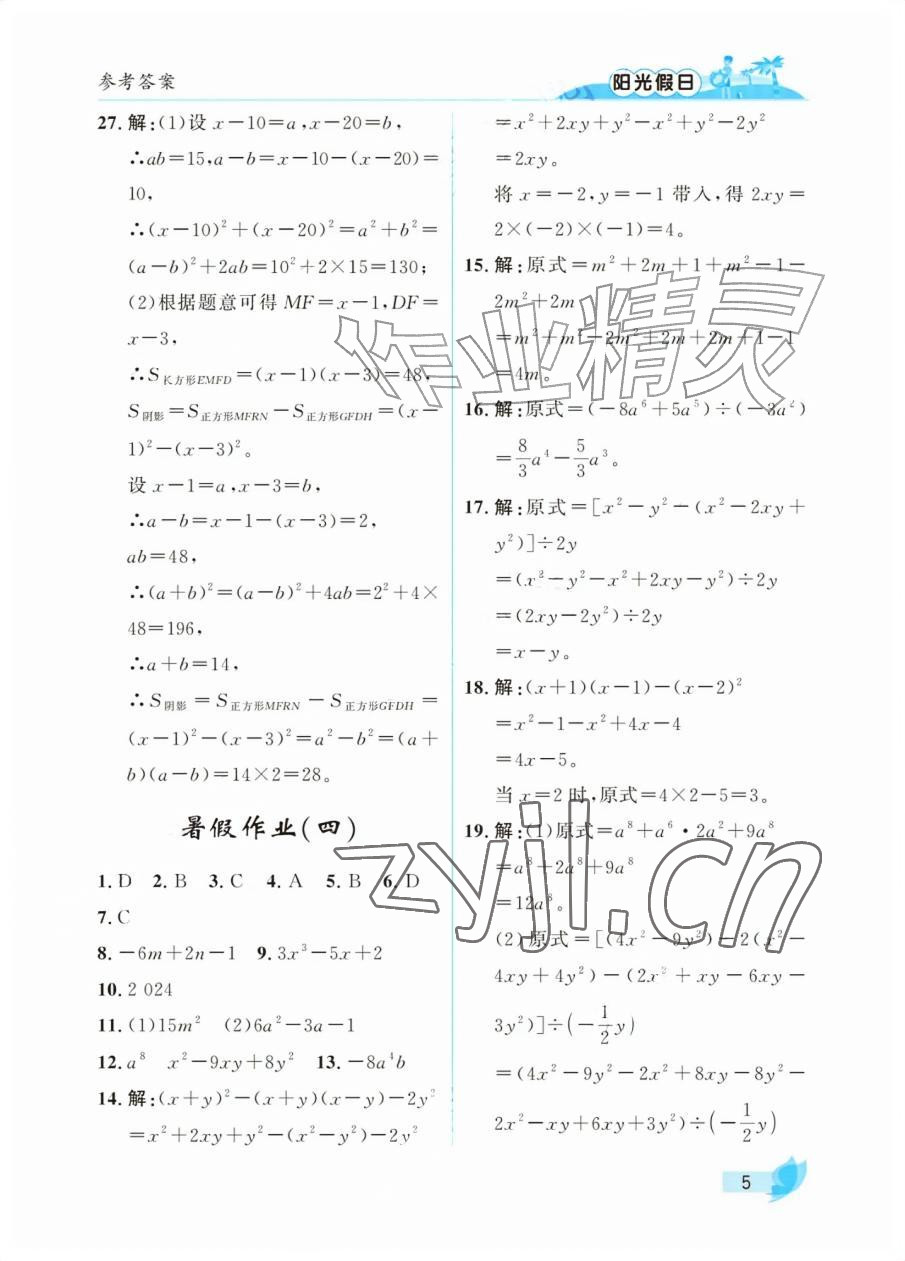 参考答案
阳光假日
27. 解:(1)设 x-10=a,x-20=b,
∴ab=15,a-b=x-10-(x-20)=
10,
∴(x-10)²+(x-20)²=a²+b²=
(a-b)²+2ab=10²+2×15=130;
(2)根据题意可得 MF=x-1,DF=
x-3,
∴S长方形EMFD=(x-1)(x-3)=48,
S阴影=S正方形MFRN-S正方形GFDH=(x-
1)²-(x-3)²。
设 x-1=a,x-3=b,
∴a-b=x-1-(x-3)=2,
ab=48,
∴(a+b)²=(a-b)²+4ab=2²+4×
48=196,
∴a+b=14,
∴S阴影=S正方形MFRN-S正方形GFDH=
(x-1)²-(x-3)²=a²-b²=(a+
b)(a-b)=14×2=28。
暑假作业(四)
1. D 2. B 3. C 4. A 5. B 6. D
7. C
8. -6m+2n-1 9. 3x³-5x+2
10. 2 024
11. (1)15m² (2)6a²-3a-1
12. a⁸ x²-9xy+8y² 13. -8a⁴b
14. 解:(x+y)²-(x+y)(x-y)-2y²
=x²+2xy+y²-(x²-y²)-2y²
=x²+2xy+y²-x²+y²-2y²
=2xy。
将 x=-2,y=-1 带入,得 2xy=
2×(-2)×(-1)=4。
15. 解:原式=m²+2m+1+m²-1-
2m²+2m
=m²+m²-2m²+2m+2m+1-1
=4m。
16. 解:原式=(-8a⁶+5a⁵)÷(-3a²)
=8/3a⁴-5/3a³。
17. 解:原式=[x²-y²-(x²-2xy+
y²)]÷2y
=(x²-y²-x²+2xy-y²)÷2y
=(2xy-2y²)÷2y
=x-y。
18. 解:(x+1)(x-1)-(x-2)²
=x²-1-x²+4x-4
=4x-5。
当 x=2 时,原式=4×2-5=3。
19. 解:(1)原式=a⁸+a⁶·2a²+9a⁸
=a⁸+2a⁸+9a⁸
=12a⁸。
(2)原式=[(4x²-9y²)-2(x²-
4xy+4y²)-(2x²+xy-6xy-
3y²)]÷(-1/2y)
=(4x²-9y²-2x²+8xy-8y²-
2x²-xy+6xy+3y²)÷(-1/2y)
5
作业精灵
zyjl.cn